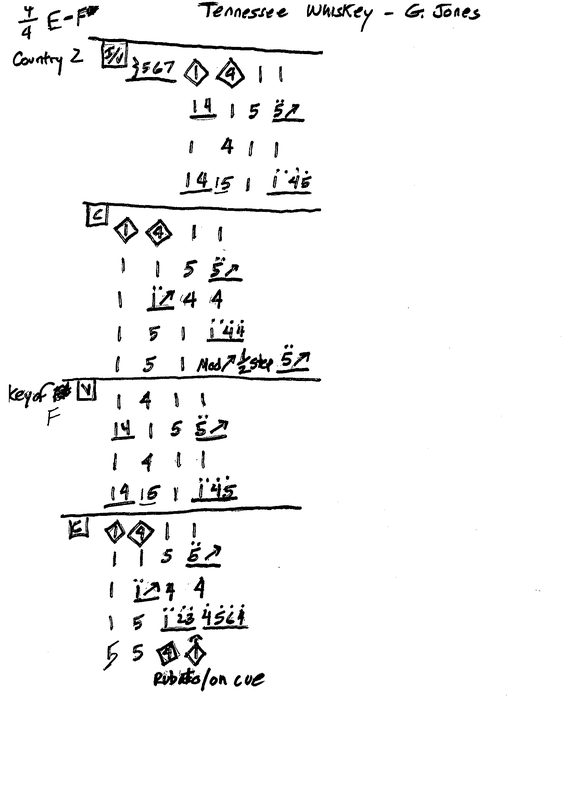 4/4 E-F Tennessee Whiskey - G. Jones
Country 2 I/V 567 1 4 1 1
14 1 5 5↗
1 4 1 1
14 15 1 1 45
C 1 4 1 1
1 1 5 5↗
1 1↗ 4 4
1 5 1 1 44
1 5 1 Mod↗ 1/2 step 5↗
Key of F V 1 4 1 1
14 1 5 5↗
1 4 1 1
14 15 1 1 45
C 1 4 1 1
1 1 5 5↗
1 1↗ 4 4
1 5 1 23 4564
5 5 4 1
Rubato/on cue